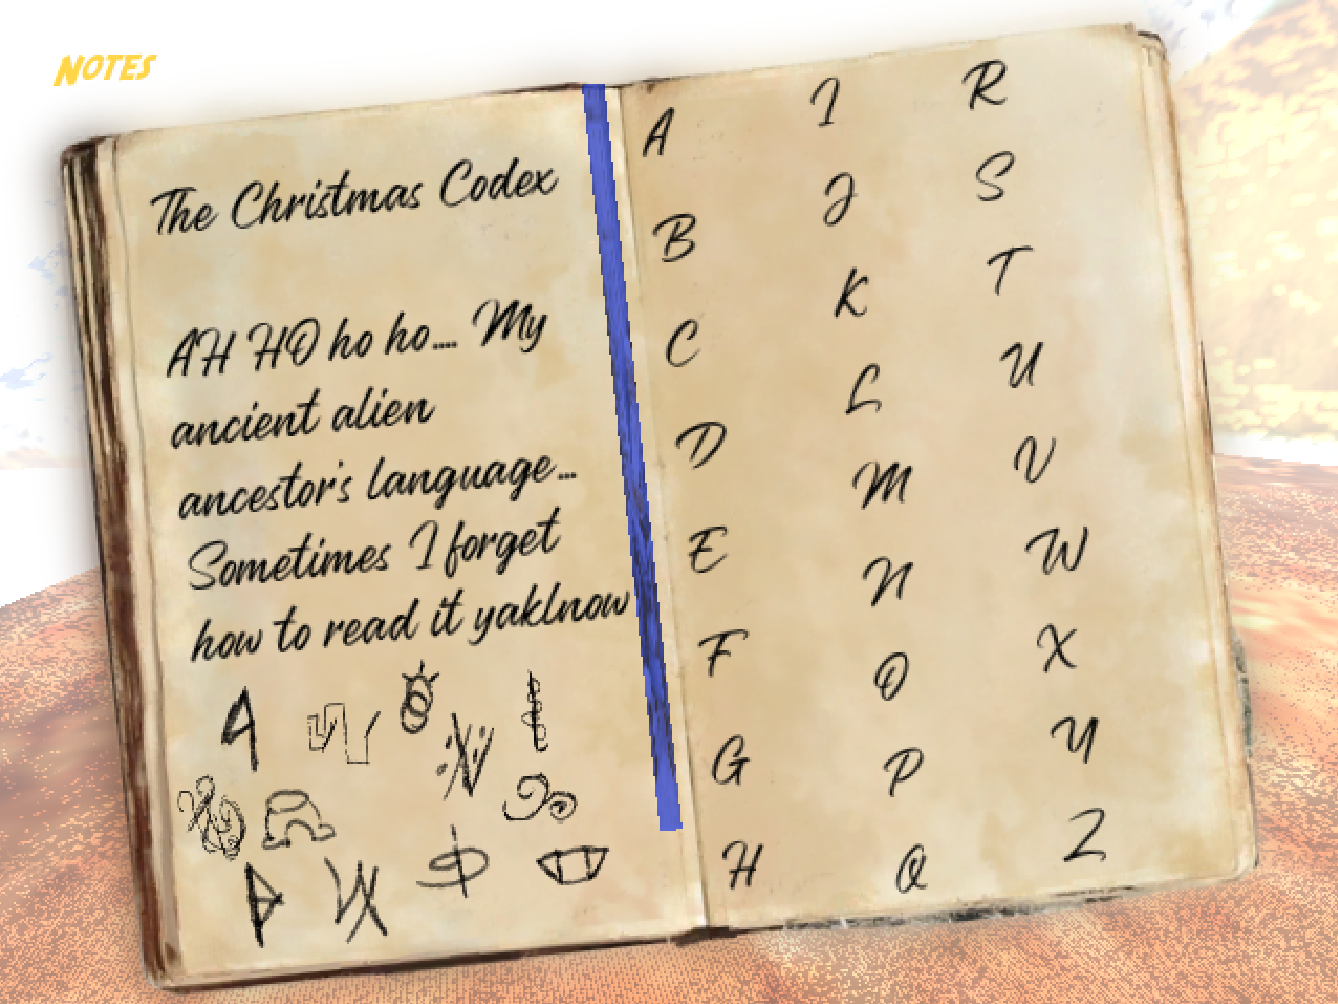 NOTES
The Christmas Codex
AH HO ho ho.... My
ancient alien
ancestor's language...
Sometimes I forget
how to read it yaklnow
A I R
B J S
C K T
D L U
E M V
F N W
G O X
H P Y
Q Z